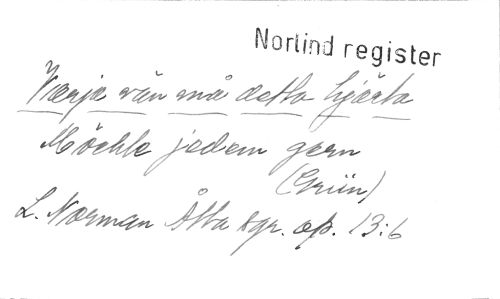 Norlind register
Varje vän må detta hjärta
Möchte jedem gern
(Grün)
L. Norman Åtta sgr. op. 13:6